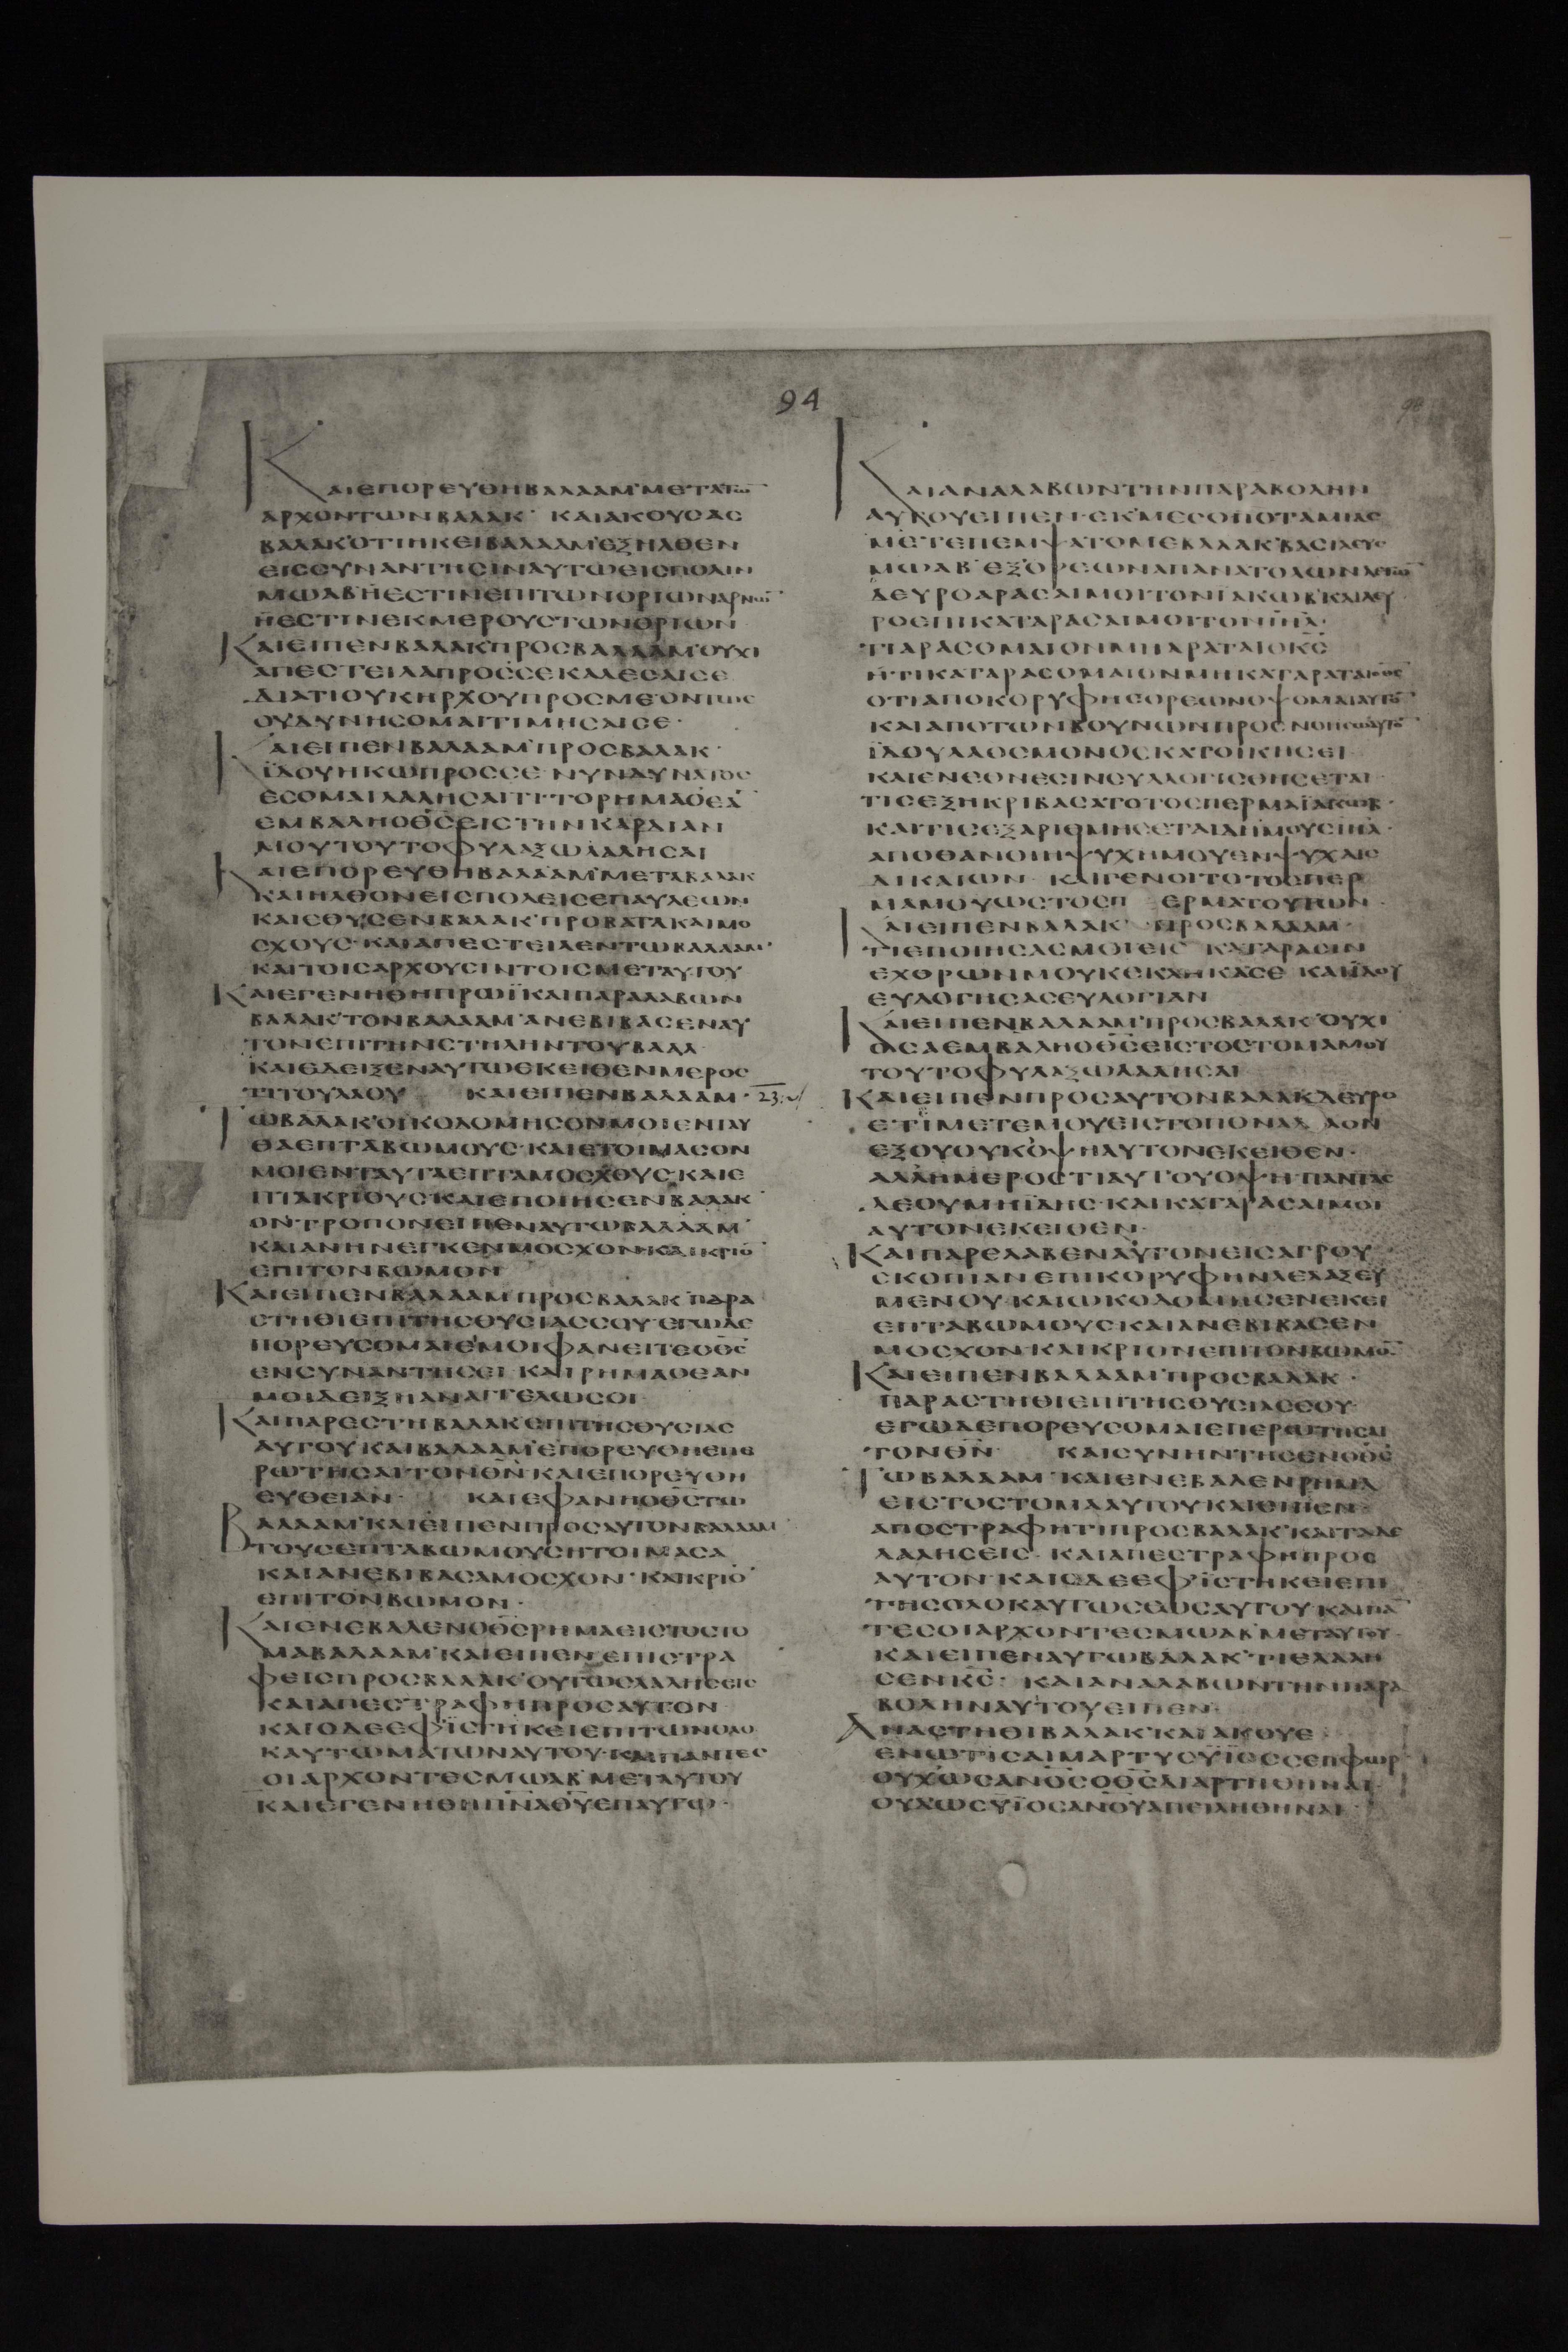 94
ΚΑΙΕΠΟΡΕΥΘΗΒΑΛΑΑΜ·ΜΕΤΑΤΩ̅
ΑΡΧΟΝΤΩΝΒΑΛΑΚ· ΚΑΙΑΚΟΥΣΑΣ
ΒΑΛΑΚ·ΟΤΙΗΚΕΙΒΑΛΑΑΜ·ΕΞΗΛΘΕΝ
ΕΙΣΣΥΝΑΝΤΗΣΙΝΑΥΤΩΕΙΣΠΟΛΙΝ
ΜΩΑΒ·ΗΕΣΤΙΝΕΠΙΤΩΝΟΡΙΩΝΑΡΝΩ̅·
ΗΕΣΤΙΝΕΚΜΕΡΟΥΣΤΩΝΟΡΙΩΝ
ΚΑΙΕΙΠΕΝΒΑΛΑΚ·ΠΡΟΣΒΑΛΑΑΜ·ΟΥΧΙ
ΑΠΕΣΤΕΙΛΑΠΡΟΣΣΕΚΑΛΕΣΑΙΣΕ
ΔΙΑΤΙΟΥΚΗΡΧΟΥΠΡΟΣΜΕ·ΟΝΤΩΣ
ΟΥΔΥΝΗΣΟΜΑΙΤΙΜΗΣΑΙΣΕ·
ΚΑΙΕΙΠΕΝΒΑΛΑΑΜ·ΠΡΟΣΒΑΛΑΚ·
ΪΔΟΥΗΚΩΠΡΟΣΣΕ·ΝΥΝΔΥΝΑΤΟΣ
ΕΣΟΜΑΙΛΑΛΗΣΑΙΤΙ·ΤΟΡΗΜΑΟΕΑ̅
ΕΜΒΑΛΗΟΘ̅Σ̅ΕΙΣΤΗΝΚΑΡΔΙΑΝ
ΜΟΥΤΟΥΤΟΦΥΛΑΞΩΛΑΛΗΣΑΙ
ΚΑΙΕΠΟΡΕΥΘΗΒΑΛΑΑΜ·ΜΕΤΑΒΑΛΑΚ
ΚΑΙΗΛΘΟΝΕΙΣΠΟΛΕΙΣΕΠΑΥΛΕΩΝ
ΚΑΙΕΘΥΣΕΝΒΑΛΑΚ·ΠΡΟΒΑΤΑΚΑΙΜΟ
ΣΧΟΥΣ·ΚΑΙΑΠΕΣΤΕΙΛΕΝΤΩΒΑΛΑΑΜ·
ΚΑΙΤΟΙΣΑΡΧΟΥΣΙΝΤΟΙΣΜΕΤΑΥΤΟΥ
ΚΑΙΕΓΕΝΗΘΗΠΡΩΪΚΑΙΠΑΡΑΛΑΒΩΝ
ΒΑΛΑΚ·ΤΟΝΒΑΛΑΑΜ·ΑΝΕΒΙΒΑΣΕΝΑΥ
ΤΟΝΕΠΙΤΗΝΣΤΗΛΗΝΤΟΥΒΑΑΛ
ΚΑΙΕΔΕΙΞΕΝΑΥΤΩΕΚΕΙΘΕΝΜΕΡΟΣ
ΤΙΤΟΥΛΑΟΥ ΚΑΙΕΙΠΕΝΒΑΛΑΑΜ· 23·
ΤΩΒΑΛΑΚ·ΟΙΚΟΔΟΜΗΣΟΝΜΟΙΕΝΤΑΥ
ΘΑΕΠΤΑΒΩΜΟΥΣ·ΚΑΙΕΤΟΙΜΑΣΟΝ
ΜΟΙΕΝΤΑΥΤΑΕΠΤΑΜΟΣΧΟΥΣ·ΚΑΙΕ
ΠΤΑΚΡΙΟΥΣ·ΚΑΙΕΠΟΙΗΣΕΝΒΑΛΑΚ·
ΟΝΤΡΟΠΟΝΕΙΠΕΝΑΥΤΩΒΑΛΑΑΜ·
ΚΑΙΑΝΗΝΕΓΚΕΝΜΟΣΧΟΝΚΑΙΚΡΙΟ̅
ΕΠΙΤΟΝΒΩΜΟΝ
ΚΑΙΕΙΠΕΝΒΑΛΑΑΜ·ΠΡΟΣΒΑΛΑΚ·ΠΑΡΑ
ΣΤΗΘΙΕΠΙΤΗΣΘΥΣΙΑΣΣΟΥ·ΕΓΩΔΕ
ΠΟΡΕΥΣΟΜΑΙΕΙΜΟΙΦΑΝΕΙΤΕΟΘ̅Σ̅
ΕΝΣΥΝΑΝΤΗΣΕΙ·ΚΑΙΡΗΜΑΟΕΑΝ
ΜΟΙΔΕΙΞΗΑΝΑΓΓΕΛΩΣΟΙ·
ΚΑΙΠΑΡΕΣΤΗΒΑΛΑΚ·ΕΠΙΤΗΣΘΥΣΙΑΣ
ΑΥΤΟΥΚΑΙΒΑΛΑΑΜ·ΕΠΟΡΕΥΘΗΕΠΕ
ΡΩΤΗΣΑΙΤΟΝΘ̅Ν̅·ΚΑΙΕΠΟΡΕΥΘΗ
ΕΥΘΕΙΑΝ· ΚΑΙΕΦΑΝΗΟΘ̅Σ̅ΤΩ
ΒΑΛΑΑΜ·ΚΑΙΕΙΠΕΝΠΡΟΣΑΥΤΟΝΒΑΛΑΑΜ·
ΤΟΥΣΕΠΤΑΒΩΜΟΥΣΗΤΟΙΜΑΣΑ
ΚΑΙΑΝΕΒΙΒΑΣΑΜΟΣΧΟΝ·ΚΑΙΚΡΙΟ̅
ΕΠΙΤΟΝΒΩΜΟΝ·
ΚΑΙΕΝΕΒΑΛΕΝΟΘ̅Σ̅ΡΗΜΑΕΙΣΤΟΣΤΟ
ΜΑΒΑΛΑΑΜ·ΚΑΙΕΙΠΕΝ·ΕΠΙΣΤΡΑ
ΦΕΙΣΠΡΟΣΒΑΛΑΚ·ΟΥΤΩΣΛΑΛΗΣΕΙΣ
ΚΑΙΑΠΕΣΤΡΑΦΗΠΡΟΣΑΥΤΟΝ
ΚΑΙΟΔΕΕΦΪΣΤΗΚΕΙΕΠΙΤΩΝΟΛΟ
ΚΑΥΤΩΜΑΤΩΝΑΥΤΟΥ·ΚΑΙΠΑΝΤΕΣ
ΟΙΑΡΧΟΝΤΕΣΜΩΑΒ·ΜΕΤΑΥΤΟΥ
ΚΑΙΕΓΕΝΗΘΗΠ̅Ν̅Α̅Θ̅Υ̅ΕΠΑΥΤΩ·
ΚΑΙΑΝΑΛΑΒΩΝΤΗΝΠΑΡΑΒΟΛΗΝ
ΑΥΤΟΥΕΙΠΕΝ·ΕΚΜΕΣΟΠΟΤΑΜΙΑΣ
ΜΕΤΕΠΕΜΨΑΤΟΜΕΒΑΛΑΚ·ΒΑΣΙΛΕΥΣ
ΜΩΑΒ·ΕΞΟΡΕΩΝΑΠΑΝΑΤΟΛΩΝΛΕΓΩ̅
ΔΕΥΡΟΑΡΑΣΑΙΜΟΙΤΟΝΪΑΚΩΒ·ΚΑΙΔΕΥ
ΡΟΕΠΙΚΑΤΑΡΑΣΑΙΜΟΙΤΟΝΙ̅Η̅Λ̅·
ΤΙΑΡΑΣΟΜΑΙΟΝΜΗΑΡΑΤΑΙΟΚ̅Σ̅
ΗΤΙΚΑΤΑΡΑΣΟΜΑΙΟΝΜΗΚΑΤΑΡΑΤΑΙΟΘ̅Σ̅
ΟΤΙΑΠΟΚΟΡΥΦΗΣΟΡΕΩΝΟΨΟΜΑΙΑΥΤΟ̅
ΚΑΙΑΠΟΤΩΝΒΟΥΝΩΝΠΡΟΣΝΟΗΣΩΑΥΤΟ̅
ΪΔΟΥΛΑΟΣΜΟΝΟΣΚΑΤΟΙΚΗΣΕΙ
ΚΑΙΕΝΕΘΝΕΣΙΝΟΥΛΛΟΓΙΣΘΗΣΕΤΑΙ
ΤΙΣΕΞΗΚΡΙΒΑΣΑΤΟΤΟΣΠΕΡΜΑΪΑΚΩΒ·
ΚΑΙΤΙΣΕΞΑΡΙΘΜΗΣΕΤΑΙΔΗΜΟΥΣΙ̅Η̅Λ̅·
ΑΠΟΘΑΝΟΙΗΨΥΧΗΜΟΥΕΝΨΥΧΑΙΣ
ΔΙΚΑΙΩΝ· ΚΑΙΓΕΝΟΙΤΟΤΟΣΠΕΡ
ΜΑΜΟΥΩΣΤΟΣΠ ΕΡΜΑΤΟΥΤΩΝ·
ΚΑΙΕΙΠΕΝΒΑΛΑΚ· ΠΡΟΣΒΑΛΑΑΜ·
ΤΙΕΠΟΙΗΣΑΣΜΟΙΕΙΣ ΚΑΤΑΡΑΣΙΝ
ΕΧΘΡΩΝΜΟΥΚΕΚΛΗΚΑΣΕ ΚΑΙΪΔΟΥ
ΕΥΛΟΓΗΣΑΣΕΥΛΟΓΙΑΝ
ΚΑΙΕΙΠΕΝΒΑΛΑΑΜ·ΠΡΟΣΒΑΛΑΚ·ΟΥΧΙ
ΟΣΑΕΜΒΑΛΗΟΘ̅Σ̅ΕΙΣΤΟΣΤΟΜΑΜΟΥ
ΤΟΥΤΟΦΥΛΑΞΩΛΑΛΗΣΑΙ
ΚΑΙΕΙΠΕΝΠΡΟΣΑΥΤΟΝΒΑΛΑΚ·ΔΕΥΡΟ
ΕΤΙΜΕΤΕΜΟΥΕΙΣΤΟΠΟΝΑΛ ΛΟΝ
ΕΞΟΥΟΥΚΟΨΗΑΥΤΟΝΕΚΕΙΘΕΝ·
ΑΛΛΗΜΕΡΟΣΤΙΑΥΤΟΥΟΨΗ·ΠΑΝΤΑΣ
ΔΕΟΥΜΗΪΔΗΣ·ΚΑΙΚΑΤΑΡΑΣΑΙΜΟΙ
ΑΥΤΟΝΕΚΕΙΘΕΝ·
ΚΑΙΠΑΡΕΛΑΒΕΝΑΥΤΟΝΕΙΣΑΓΡΟΥ
ΣΚΟΠΙΑΝΕΠΙΚΟΡΥΦΗΝΛΕΛΑΞΕΥ
ΜΕΝΟΥ·ΚΑΙΩΚΟΔΟΜΗΣΕΝΕΚΕΙ
ΕΠΤΑΒΩΜΟΥΣ·ΚΑΙΑΝΕΒΙΒΑΣΕΝ
ΜΟΣΧΟΝΚΑΙΚΡΙΟΝΕΠΙΤΟΝΒΩΜΟ̅
ΚΑΙΕΙΠΕΝΒΑΛΑΑΜ·ΠΡΟΣΒΑΛΑΚ·
ΠΑΡΑΣΤΗΘΙΕΠΙΤΗΣΘΥΣΙΑΣΣΟΥ·
ΕΓΩΔΕΠΟΡΕΥΣΟΜΑΙΕΠΕΡΩΤΗΣΑΙ
ΤΟΝΘ̅Ν̅ ΚΑΙΣΥΝΗΝΤΗΣΕΝΟΘ̅Σ̅
ΤΩΒΑΛΑΑΜ·ΚΑΙΕΝΕΒΑΛΕΝΡΗΜΑ
ΕΙΣΤΟΣΤΟΜΑΑΥΤΟΥΚΑΙΕΙΠΕΝ·
ΑΠΟΣΤΡΑΦΗΤΙΠΡΟΣΒΑΛΑΚ·ΚΑΙΤΑΔΕ
ΛΑΛΗΣΕΙΣ·ΚΑΙΑΠΕΣΤΡΑΦΗΠΡΟΣ
ΑΥΤΟΝ·ΚΑΙΟΔΕΕΦΪΣΤΗΚΕΙΕΠΙ
ΤΗΣΟΛΟΚΑΥΤΩΣΕΩΣΑΥΤΟΥ·ΚΑΙΠΑ̅
ΤΕΣΟΙΑΡΧΟΝΤΕΣΜΩΑΒ·ΜΕΤΑΥΤΟΥ·
ΚΑΙΕΙΠΕΝΑΥΤΩΒΑΛΑΚ·ΤΙΕΛΑΛΗ
ΣΕΝΚ̅Σ̅· ΚΑΙΑΝΑΛΑΒΩΝΤΗΝΠΑΡΑ
ΒΟΛΗΝΑΥΤΟΥΕΙΠΕΝ·
ΑΝΑΣΤΗΘΙΒΑΛΑΚ·ΚΑΙΑΚΟΥΕ
ΕΝΩΤΙΣΑΙΜΑΡΤΥΣΥΪΟΣΣΕΠΦΩΡ·
ΟΥΧΩΣΑΝ̅Ο̅Σ̅ΟΘ̅Σ̅ΔΙΑΡΤΗΘΗΝΑΙ·
ΟΥΔΩΣΥΪΟΣΑΝ̅Ο̅Υ̅ΑΠΕΙΛΗΘΗΝΑΙ·